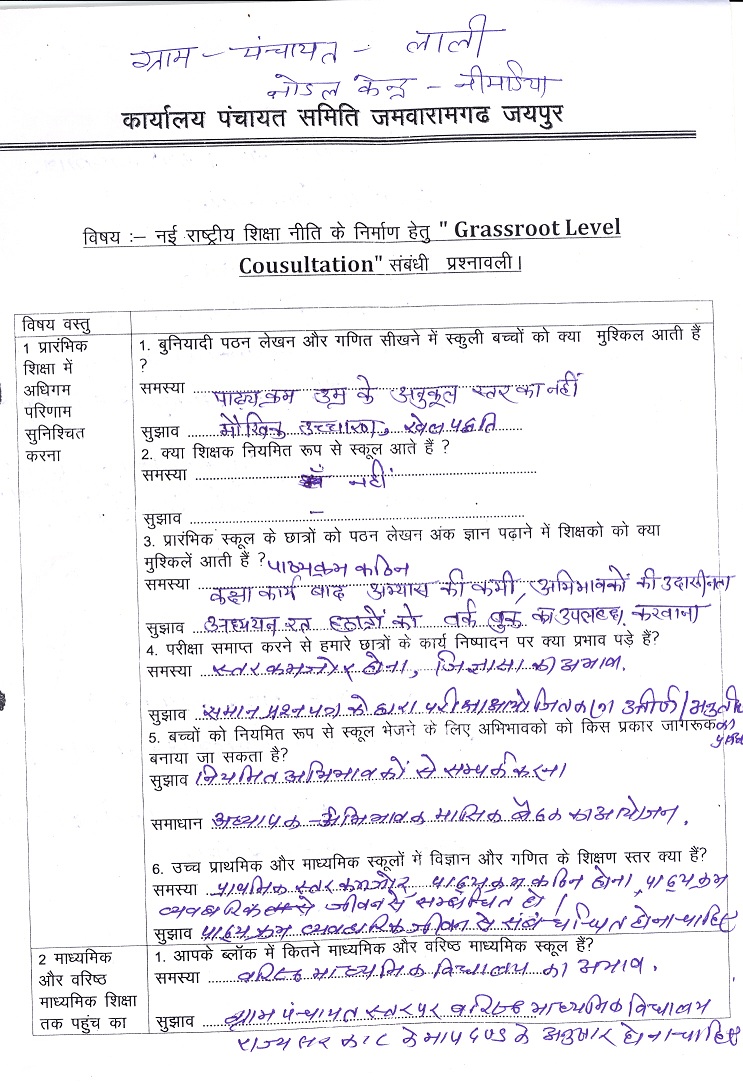 ग्राम - पंचायत - लाली
नोडल केन्द्र - नीमडिया
कार्यालय पंचायत समिति जमवारामगढ जयपुर
विषय :– नई राष्ट्रीय शिक्षा नीति के निर्माण हेतु " Grassroot Level
Cousultation" संबंधी प्रश्नावली।
विषय वस्तु
1 प्रारंभिक
शिक्षा में
अधिगम
परिणाम
सुनिश्चित
करना
1. बुनियादी पठन लेखन और गणित सीखने में स्कुली बच्चों को क्या मुश्किल आती हैं
?
समस्या पाठ्यक्रम उम्र के अनुकूल स्तर का नहीं
सुझाव मौखिक उच्चारण, खेल पद्धति
2. क्या शिक्षक नियमित रूप से स्कूल आते हैं ?
समस्या नहीं
सुझाव –
3. प्रारंभिक स्कूल के छात्रों को पठन लेखन अंक ज्ञान पढ़ाने में शिक्षको को क्या
मुश्किलें आती हैं ? पाठ्यक्रम कठिन
समस्या कक्षा कार्य बाद अभ्यास की कमी, अभिभावकों की उदासीनता
सुझाव अध्ययन रत छात्रों को वर्क बुक का उपलब्ध करवाना
4. परीक्षा समाप्त करने से हमारे छात्रों के कार्य निष्पादन पर क्या प्रभाव पड़े हैं?
समस्या स्तर कमजोर होना, जिज्ञासा का अभाव.
सुझाव समान प्रश्न पत्र के द्वारा परीक्षा आयोजित करना उत्तीर्ण/
5. बच्चों को नियमित रूप से स्कूल भेजने के लिए अभिभावको को किस प्रकार जागरूक
बनाया जा सकता है?
सुझाव नियमित अभिभावकों से सम्पर्क करना
समाधान अध्यापक - अभिभावक मासिक बैठक का आयोजन.
6. उच्च प्राथमिक और माध्यमिक स्कूलों में विज्ञान और गणित के शिक्षण स्तर क्या हैं?
समस्या प्राथमिक स्तर कमजोर पाठ्यक्रम कठिन होना, पाठ्यक्रम
व्यवहारिक जीवन से सम्बन्धित हो।
सुझाव पाठ्यक्रम व्यवहारिक जीवन से संबन्धित होना चाहिए
2 माध्यमिक
और वरिष्ठ
माध्यमिक शिक्षा
तक पहुंच का
1. आपके ब्लॉक में कितने माध्यमिक और वरिष्ठ माध्यमिक स्कूल हैं?
समस्या वरिष्ठ माध्यमिक विद्यालय का अभाव.
सुझाव ग्राम पंचायत स्तर पर वरिष्ठ माध्यमिक विद्यालय
राज्य सरकार के मापदण्ड के अनुसार होना चाहिए